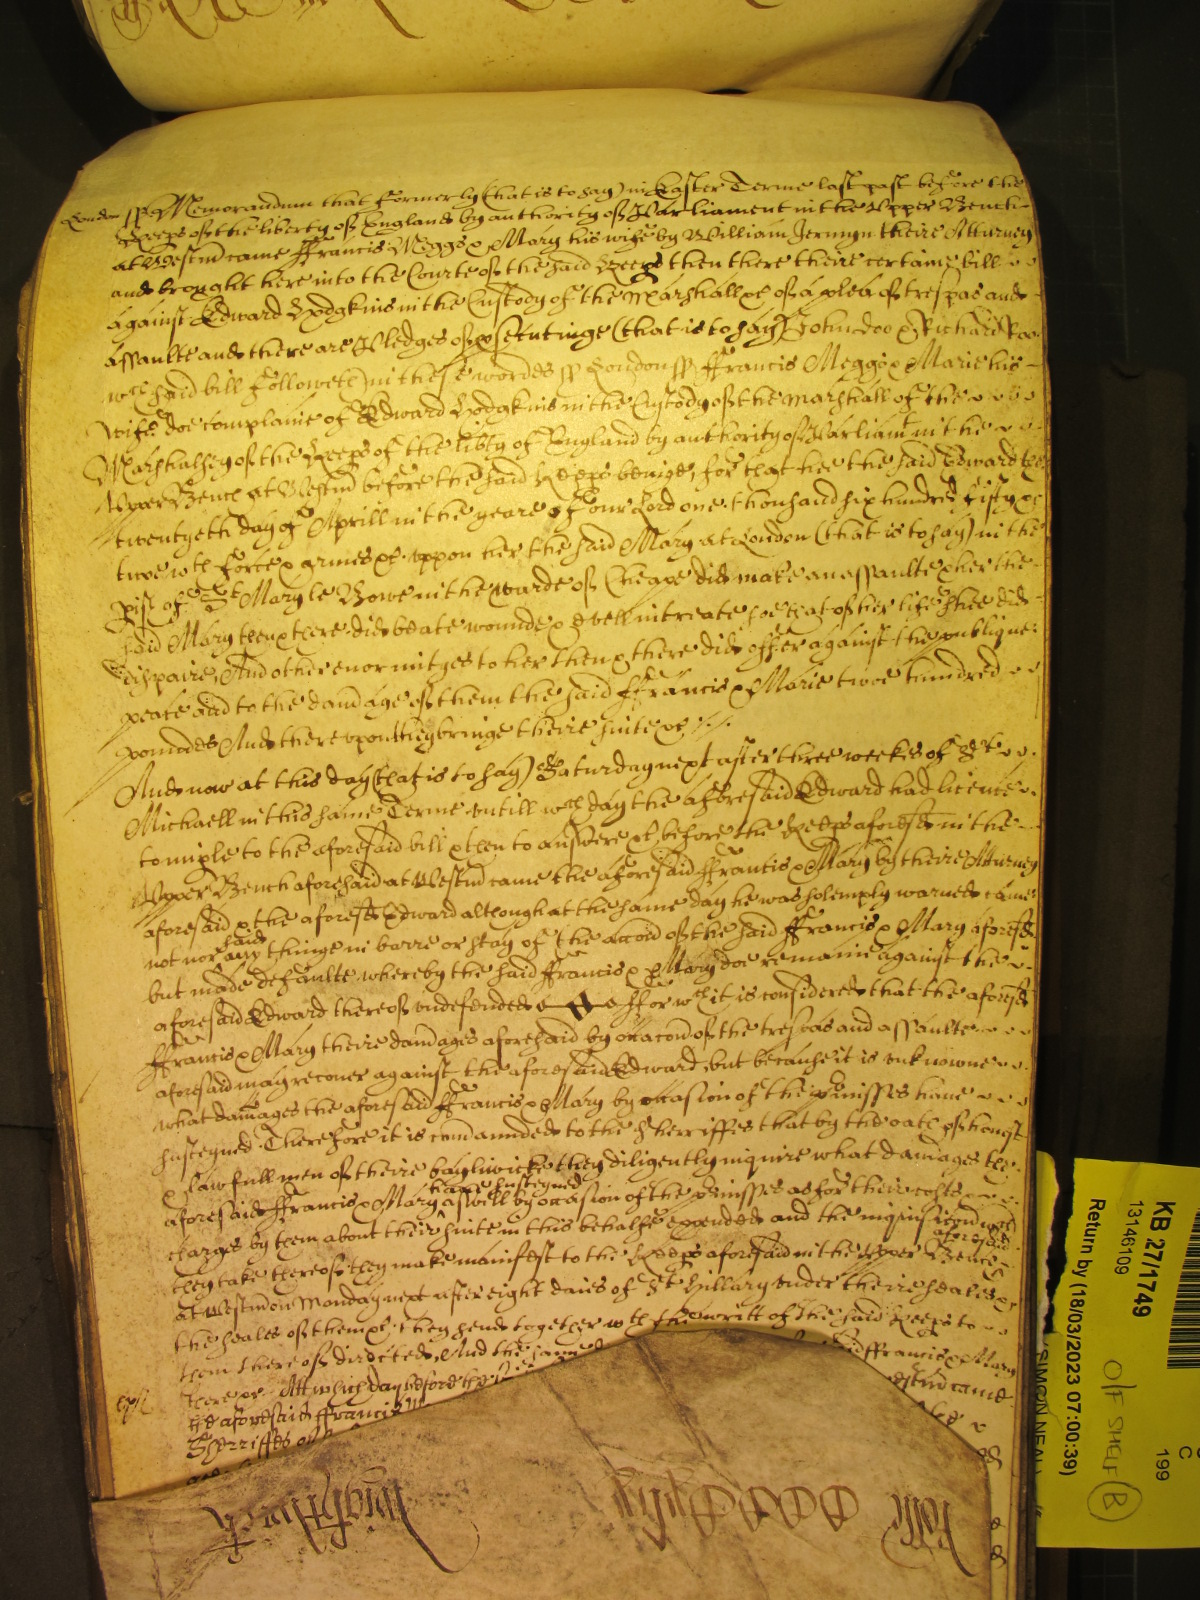 London ss Memorandum that formerly (that is to say) in Easter Terme last past before the
Keeps of the liberty of England by authority of Parliament in the Upper Bench
at Westm came ffrancis Meggs & Mary his wife by William Jermyn theire Atturney
and brought here into the Courte of the said Keeps then there theire certaine bill
against Edward Hodgkins in the Custody of the Marshall &c of a plea of trespas and
assaulte and there are Pledges of psecutinge (that is to say) John Doo & Richard Roo
wch said bill followeth in these wordes ss London ss ffrancis Meggs & Marie his
wife doe complaine of Edward Hodgkins in the Custody of the Marshall of the
Marshalsey of the Keeps of the libty of England by authority of Parliamt in the
Upper Bench at Westm before the said Keeps beinge, for that hee the said Edward the
twentyeth day of Aprill in the yeare of our Lord one thousand six hundred fifty &
twoe wth force & armes &c uppon her the said Mary at London (that is to say) in the
pish of St Mary le Bowe in the warde of Cheape did make an assaulte & her the
said Mary then & there did beate wounde & evill intreate soe that of her life shee did
dispaire, And other enormityes to her then & there did offer against the publique
peace and to the damage of them the said ffrancis & Marie twoe hundred
poundes And thereupon they bringe theire suite &c
And now at this day (that is to say) Saturday next after three weekes of St
Michaell in this same Terme untill wch day the aforesaid Edward had licence
to imple to the aforesaid bill & then to answere &c before the Keeps aforesd in the
Upper Bench aforesaid at Westm came the aforesaid ffrancis & Mary by theire Atturney
aforesaid & the aforesd Edward although at the same day he was solemply warned came
not nor said any thinge in barre or stay of the accon of the said ffrancis & Mary aforesd
but made defaulte whereby the said ffrancis & Mary doe remaine against the
aforesaid Edward thereof undefended ffor wch it is considered that the aforesd
ffrancis & Mary theire damages aforesaid by occacon of the trespas and assaulte
aforesaid may recover against the aforesaid Edward, but because it is unknowne
what damages the aforesaid ffrancis & Mary by occasion of the pmisses have
susteyned Therefore it is comaunded to the Sherriffes that by the oath of honest
& lawfull men of theire bayliwicke they diligently inquire what damages the
aforesaid ffrancis & Mary have susteyned aswell by occasion of the pmisses as for theire costs
charges by them about their suite in this behalfe expended and the inquisicon wch
they take thereof they make manifest to the Keeps aforesaid in the Upper Bench aforesaid
at Westm on Monday next after eight daies of St Hillary under theire seales &
the seales of them &c they send together wth the writt of the said Keeps to
them thereof directed, And the same said ffrancis & Mary
there &c Att which day before the Westm came
the aforesaid ffrancis
Sherriffes of
KB 27/1749
13146109
Return by (18/03/2023 07:00:39)
SIMON NEAL
O/F SHELF B
C
199